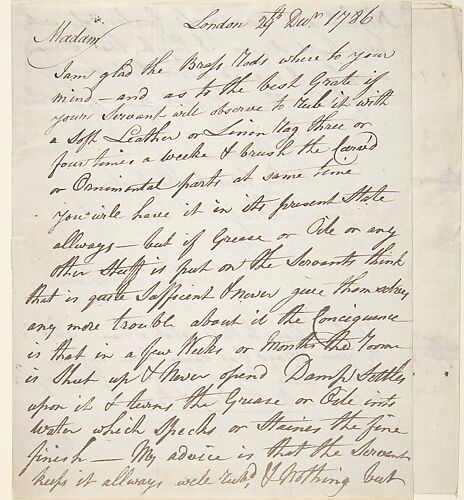 London 29th Decr 1786
Madam
I am glad the Brass Rods where to your
mind – and as to the best Grate if
your Servant will observe to rub it with
a soft Leather or Linin Rag three or
four times a weeke & brush the Carved
or Ornimental parts at same time
you will have it in its present State
allways – but if Grease or Oile or any
other Stuff is put on the Servants think
that is quite Sufficent & never give themselves
any more trouble about it the Conciquence
is that in a few Weeks or Months the Roome
is Shut up & Never opend Damp Settles
upon it & turns the Grease or Oile into
Water which Specks or Staines the fine
finish – My advice is that the Servant
keeps it allways well rubd, & Nothing but